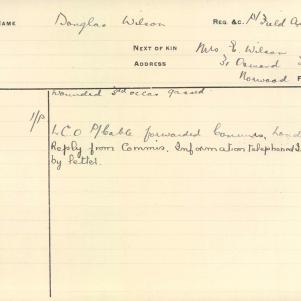 NAME Douglas Wilson REG. &C. Field
NEXT OF KIN Mrs. E. Wilson
ADDRESS 31 Osmond
Norwood
wounded 3rd occas gassed.
L.C.O P/Cable forwarded Commis,
Reply from Commis. Information telephoned
by letter.